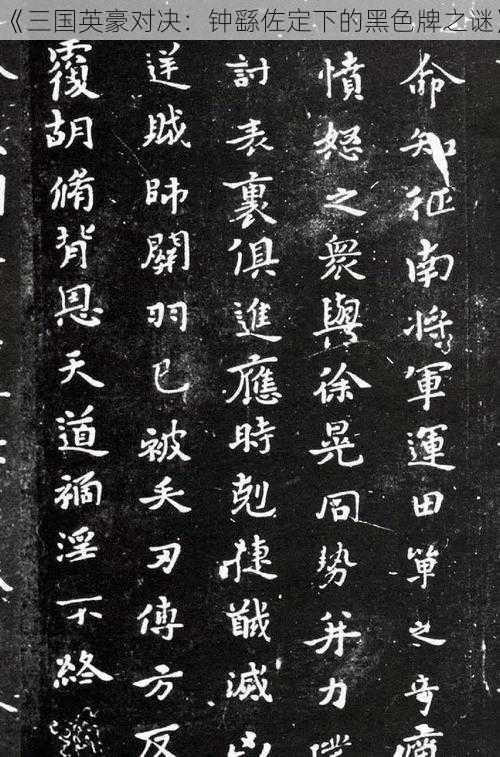 《三国英豪对决：钟繇佐定下的黑色牌之谜》
命知征南將軍運田單之奇厲
憤怒之眾與徐晃同勢并力撲
討表裏俱進應時剋捷馘滅凶
逆賊帥關羽已被矢刃傅方反
覆胡脩背恩天道禍淫不終